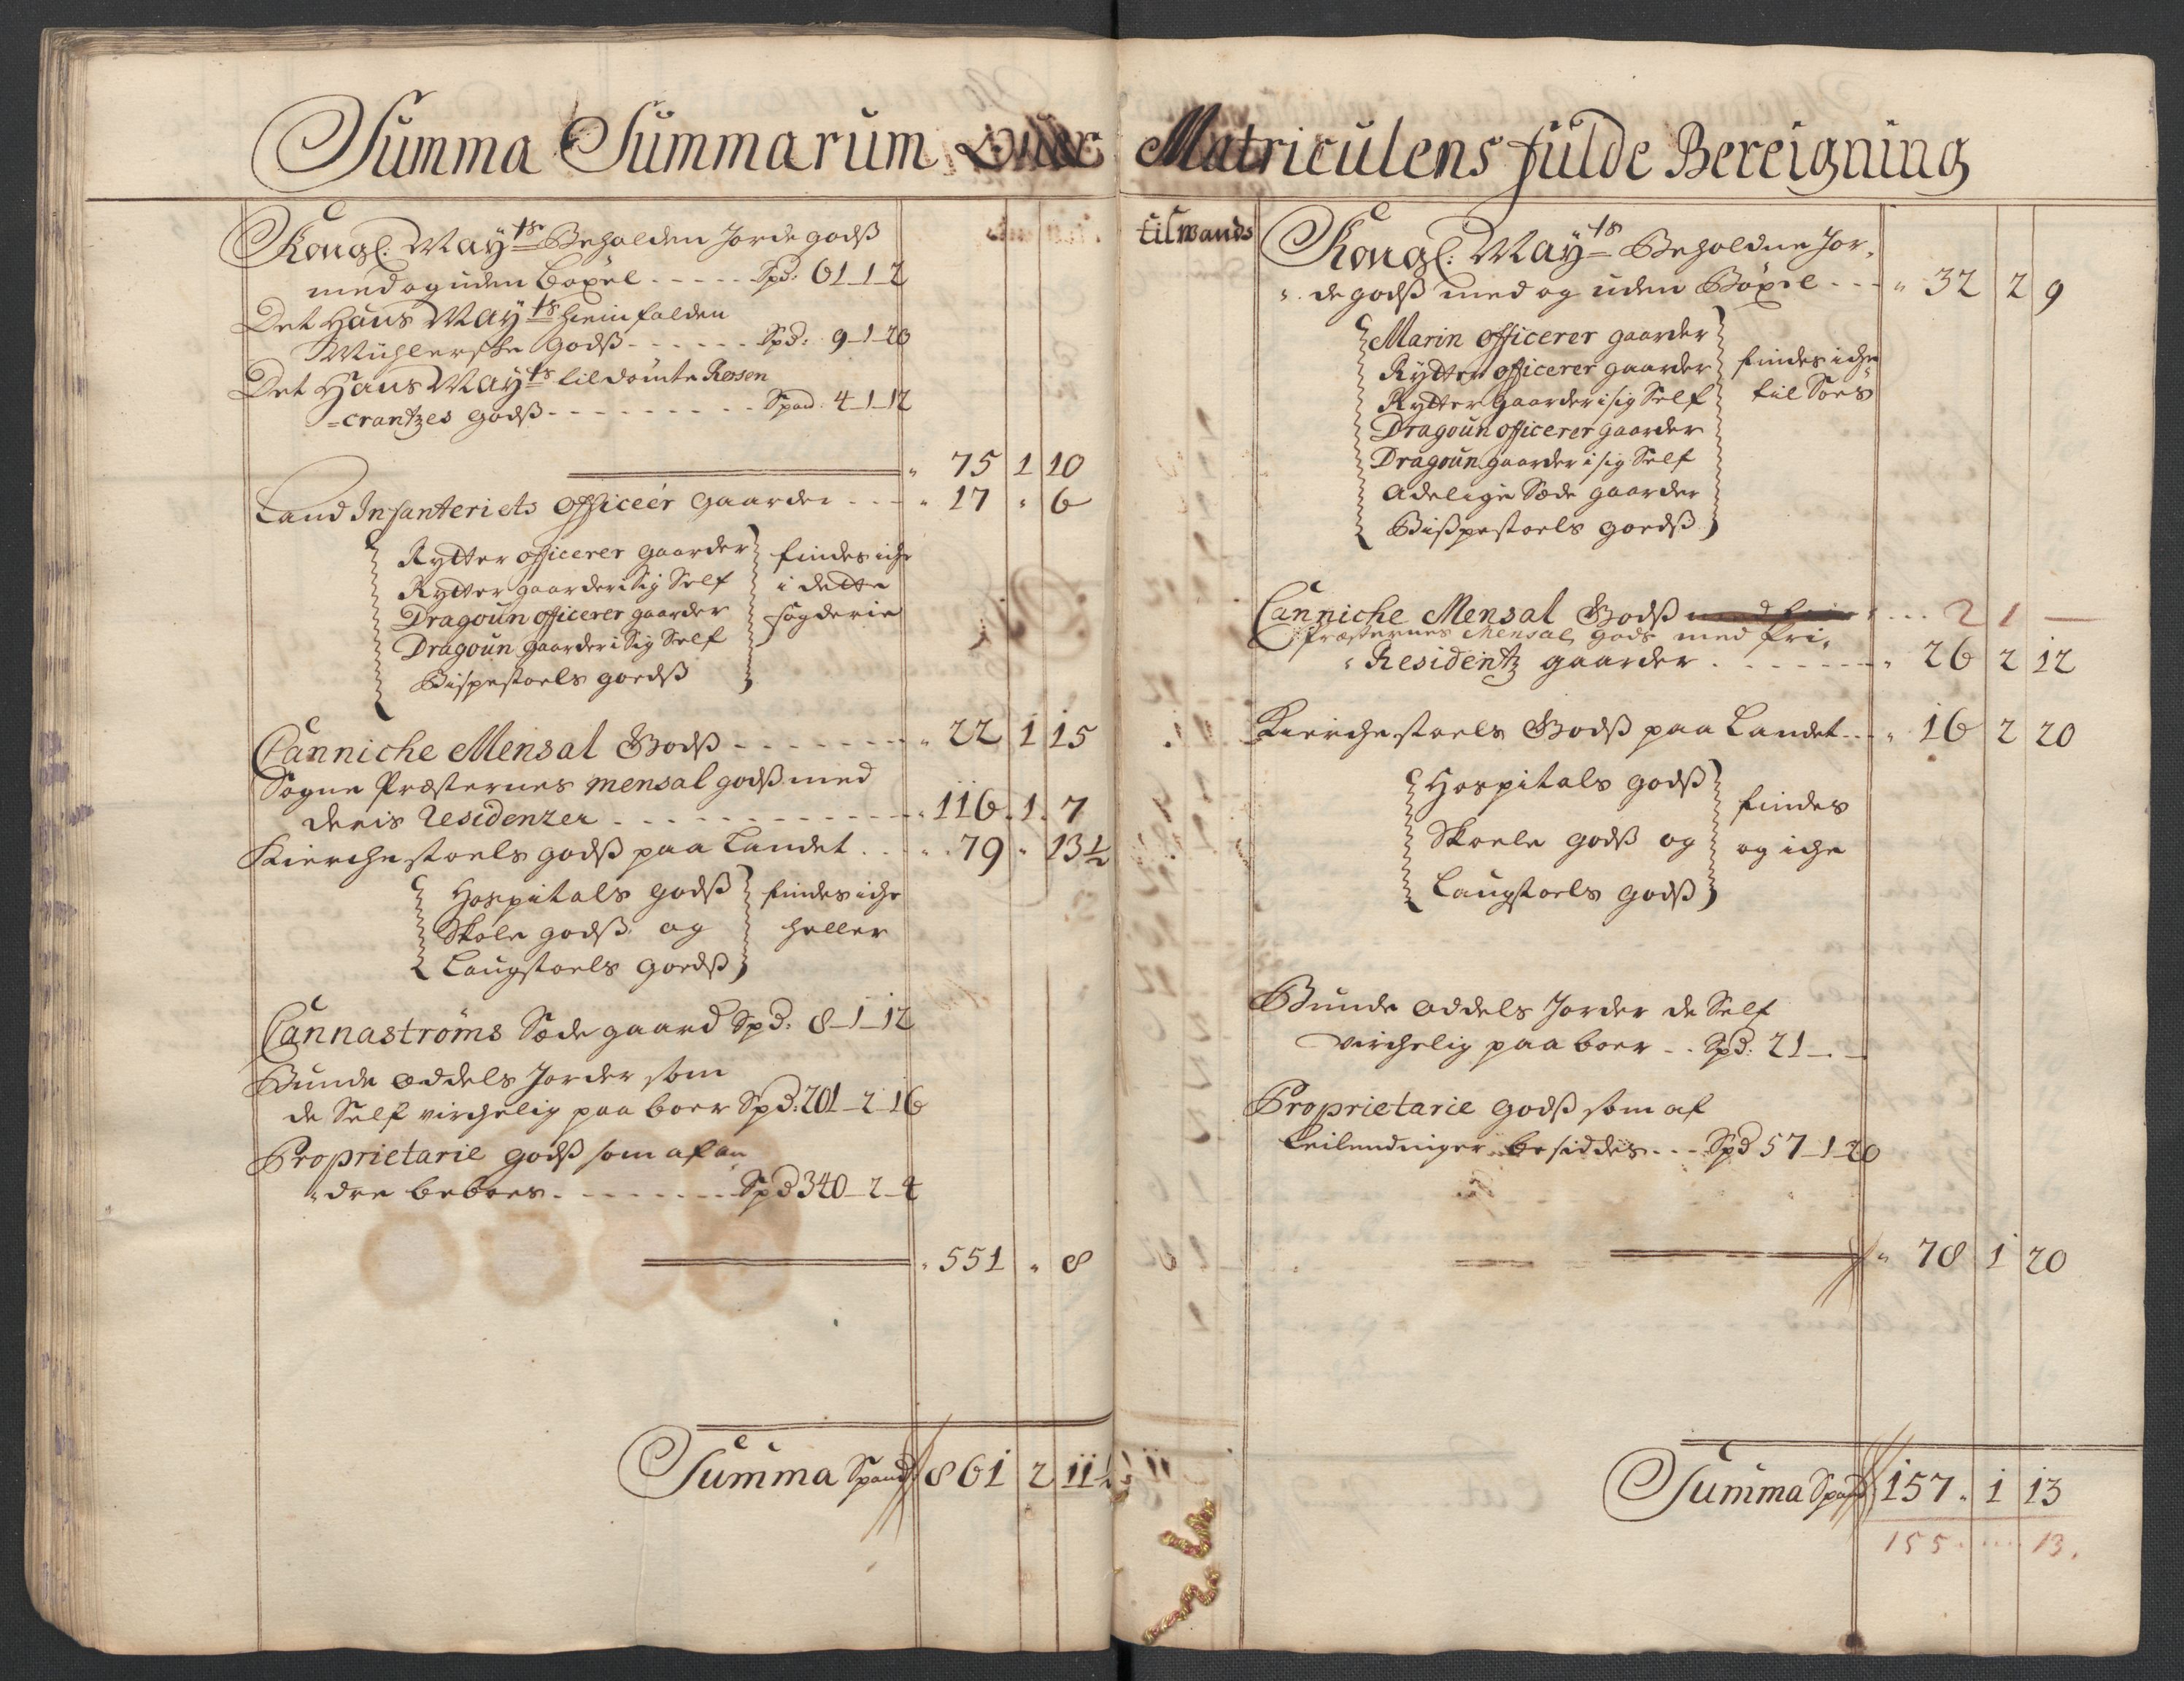 Summa Summarum Over Matriculens fulde Bereigning
Kongl: May:ts Beholden Jordegodß
med og uden böxel - - - - - Spd: 61-1-2
Det Hans May:ts hiemfalden
Mühlerske godß - - - - - - Spd: 9-1-20
Det Hans May:ts tildömte Rosen
=crantzes godß - - - - - - - - - Spad: 4-1-12
" 75 | 1 | 10
Land Infanteriets officeér gaarder - - - " 17 | " | 6
Rytter officerer gaarder
Rytter gaarder i Sig Self
Dragoun officerer gaarder
Dragoun gaarder i Sig Self
Bispestoels goedß
findes iche
i dette
fogderie
Canniche Mensal Godß - - - - - - - - " 22 | 1 | 15
Sogne Præsternes mensal godß med
deris Residenzer - - - - - - - - - - - " 116 . 1 . 7
Kierchestoels godß paa Landet . . . " 79 " 13½
Hospitals godß
Skole godß og
Laugstoels goedß
findes iche
heller
Cannaströms Sæde gaard Spd: 8-1-12
Bunde oddels Jorder som
de Self virchelig paa boer Spd: 201-2-16
Proprietarie godß som af an
"dre beboes - - - - - - - - Spd 340-2-4
" 551 " 8
Summa Spand 861 | 2 | 11½
tilmands
Kongl: May:ts Beholdne Jor,
". degodß med og uden Böxel - - - " 32 | 2 | 9
Marin officerer gaarder
Rytter officerer gaarder
Rytter gaarder i sig Self
Dragoun officerer gaarder
Dragoun gaarder i sig Self
Adelige Sæde gaarder
Bißpestoels goedß
findes iche
til Söes
Canniche Mensal Godß . . . 2 1 —
Præsternes Mensal gods med fri,
" Residentz gaarder . - - - - - - " 26 | 2 | 12
Kierchestoels Godß paa Landet - - " 16 | 2 | 20
Hospitals godß
Skoele godß og
Laugstoels godß
findes
og iche
Bunde oddels Jorder de Self
virchelig paa boer - - Spd: 21 - . -
Proprietarie godß som af
Leilendniger besiddes - - - Spd 57-1-20
" 78 | 1 | 20
Summa Spand 157 . | 1 | 13
155 . . . . . 13.